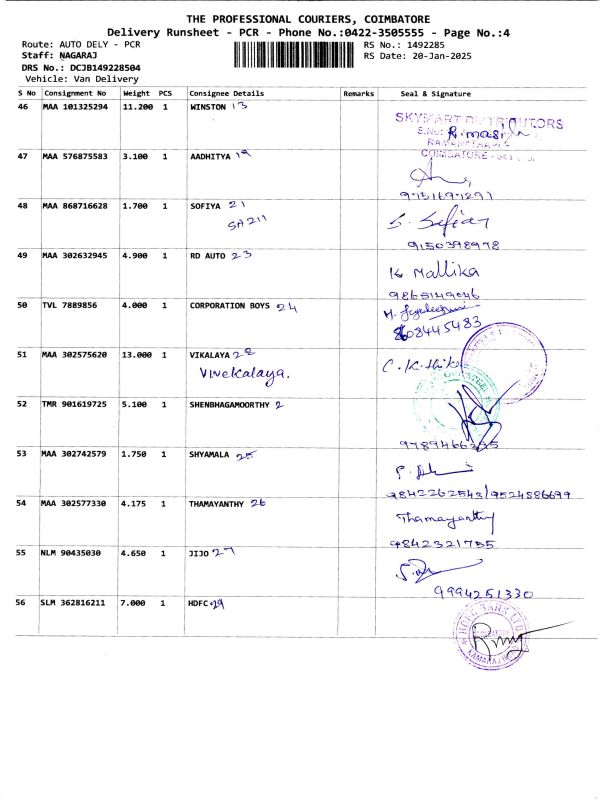 THE PROFESSIONAL COURIERS, COIMBATORE
Delivery Runsheet - PCR - Phone No.:0422-3505555 - Page No.:4
Route: AUTO DELY - PCR RS No.: 1492285
Staff: NAGARAJ RS Date: 20-Jan-2025
DRS No.: DCJB149228504
Vehicle: Van Delivery
S No Consignment No Weight PCS Consignee Details Remarks Seal & Signature
46 MAA 101325294 11.200 1 WINSTON 13
SKYMART DISTRIBUTORS
COIMBATORE
47 MAA 576875583 3.100 1 AADHITYA 19
9751697291
48 MAA 868716628 1.700 1 SOFIYA 21
SA211
S. Sofiya
9150398978
49 MAA 302632945 4.900 1 RD AUTO 23
K. Mallika
9865149046
50 TVL 7889856 4.000 1 CORPORATION BOYS 24
608445483
51 MAA 302575620 13.000 1 VIKALAYA 28
Vivekalaya.
52 TMR 901619725 5.100 1 SHENBHAGAMOORTHY 2
53 MAA 302742579 1.750 1 SHYAMALA 25
9842262543/9524886699
54 MAA 302577330 4.175 1 THAMAYANTHY 26
Thamayanthy
9842321755
55 NLM 90435030 4.650 1 JIJO 27
9994251330
56 SLM 362816211 7.000 1 HDFC 29
HDFC BANK LTD